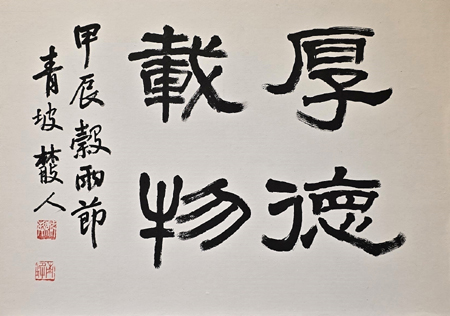 厚德
載物
甲辰穀雨節
青坡散人